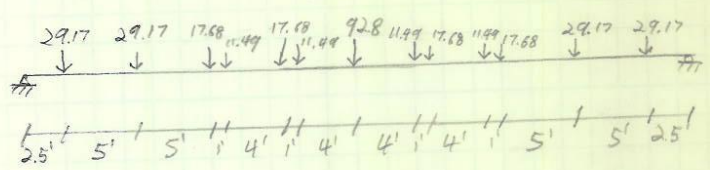 29.17 29.17 17.68 11.49 17.68 11.49 92.8 11.49 17.68 11.49 17.68 29.17 29.17
2.5' 5' 5' 1' 4' 1' 4' 4' 1' 4' 1' 5' 5' 2.5'